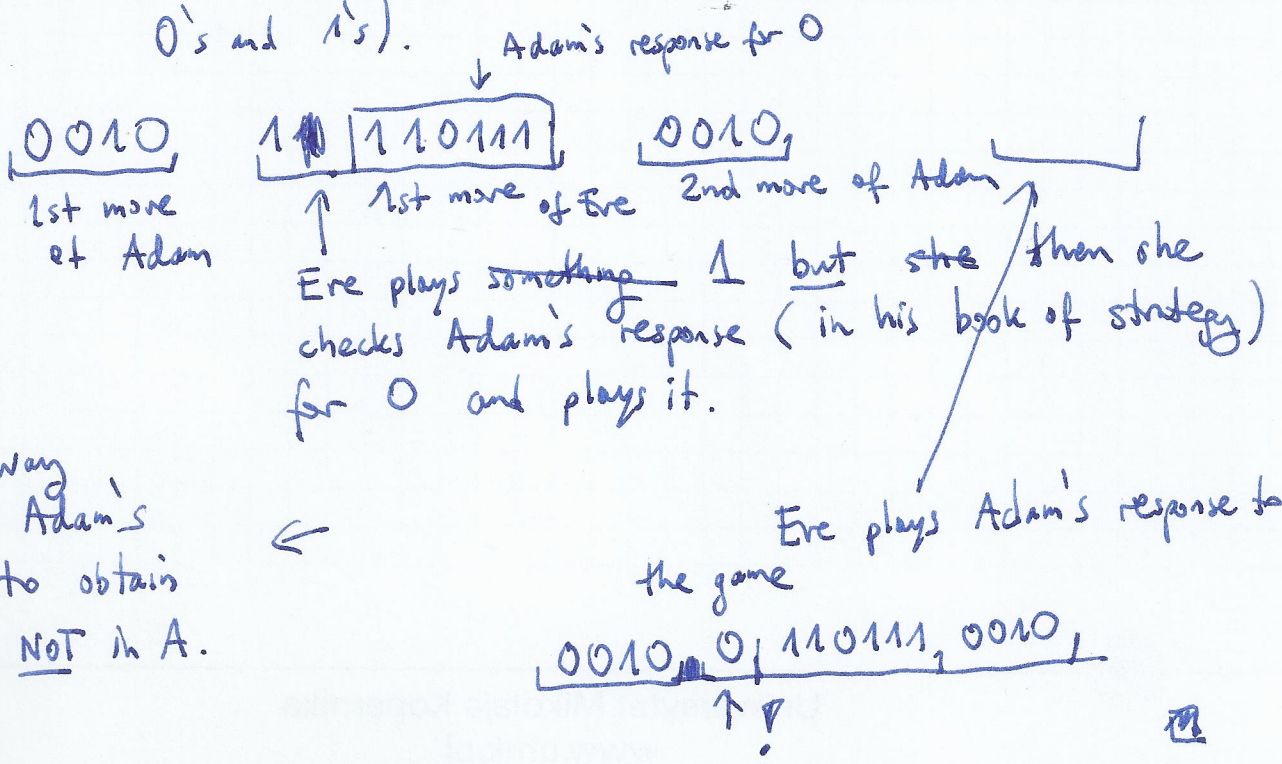 0's and 1's).
Adam's response for 0
0010 1 110111 0010
1st move of Adam
1st move of Eve
2nd move of Adam
Eve plays something 1 but she then she
checks Adam's response (in his book of strategy)
for 0 and plays it.
way
Adam's
to obtain
NOT in A.
Eve plays Adam's response to
the game
0010 0 110111 0010
!